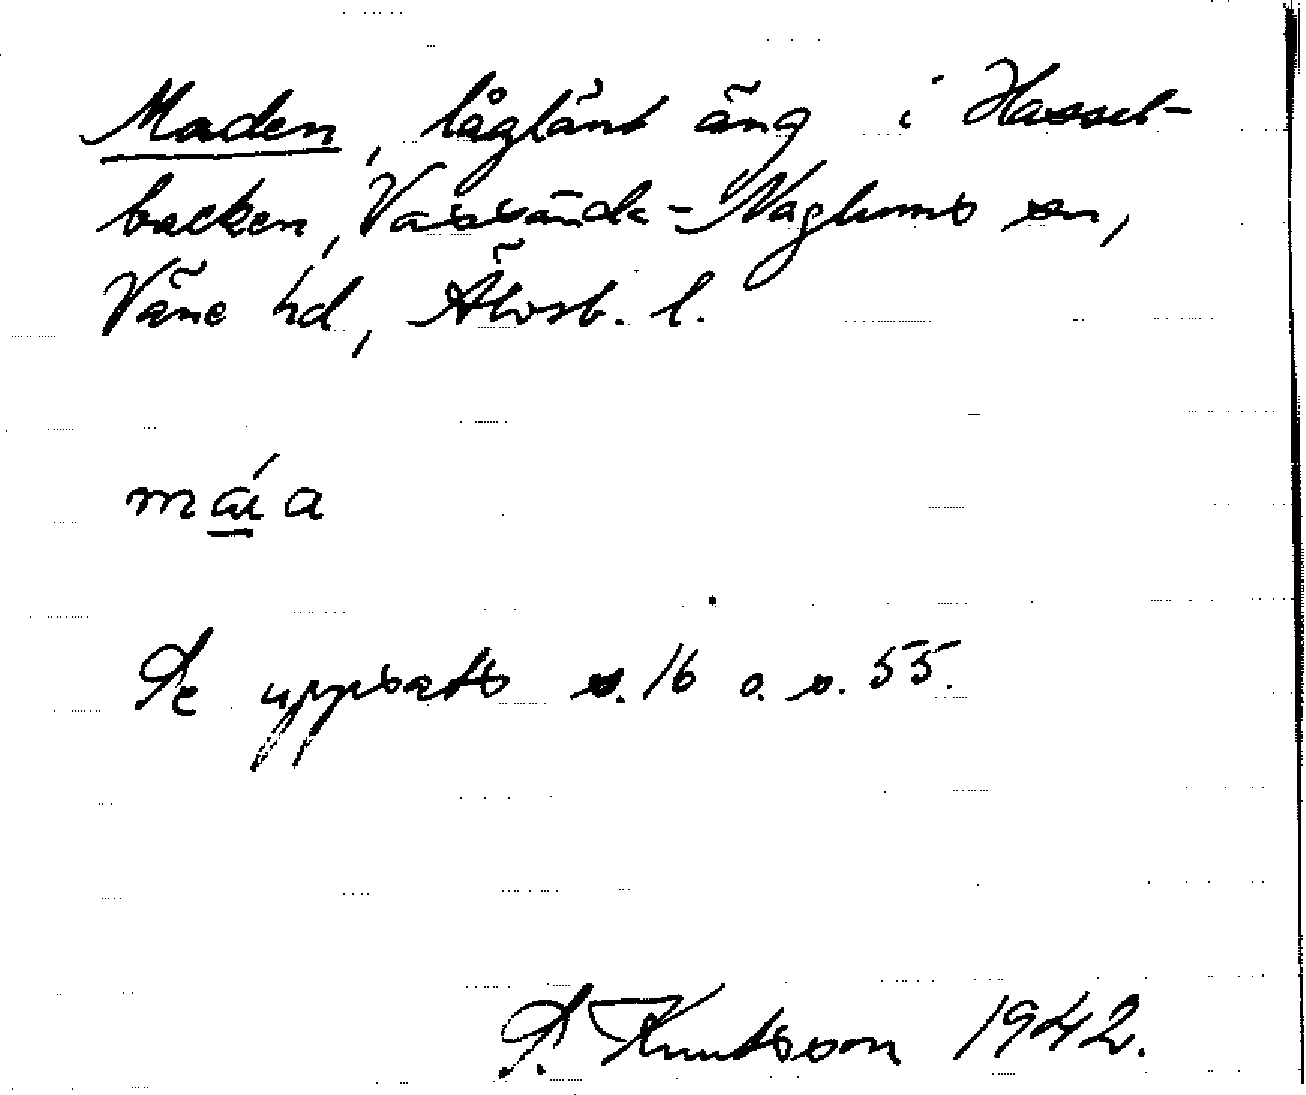 Maden, låglänt äng i Hassel-
backen, Vassända-Naglums sn,
Väne hd, Älvsb. l.
máia
Se uppsats s. 16 o. s. 55.
S. Knutsson 1942.